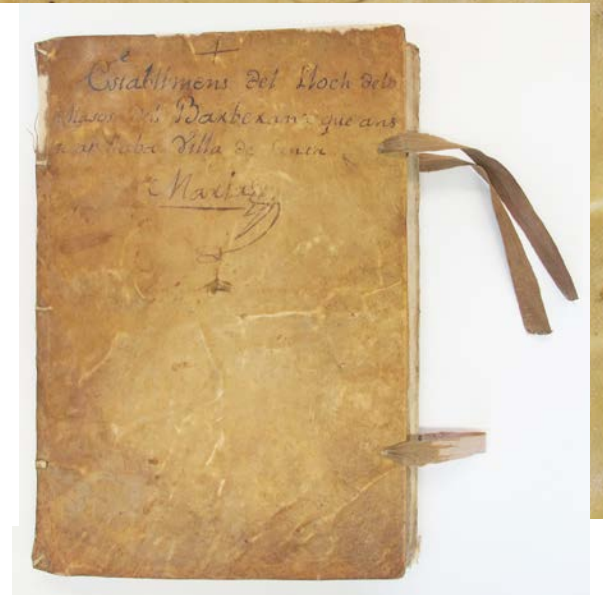 +
Establimens del Lloch dels
Masos de Barberans que ans
Villa de
Maria